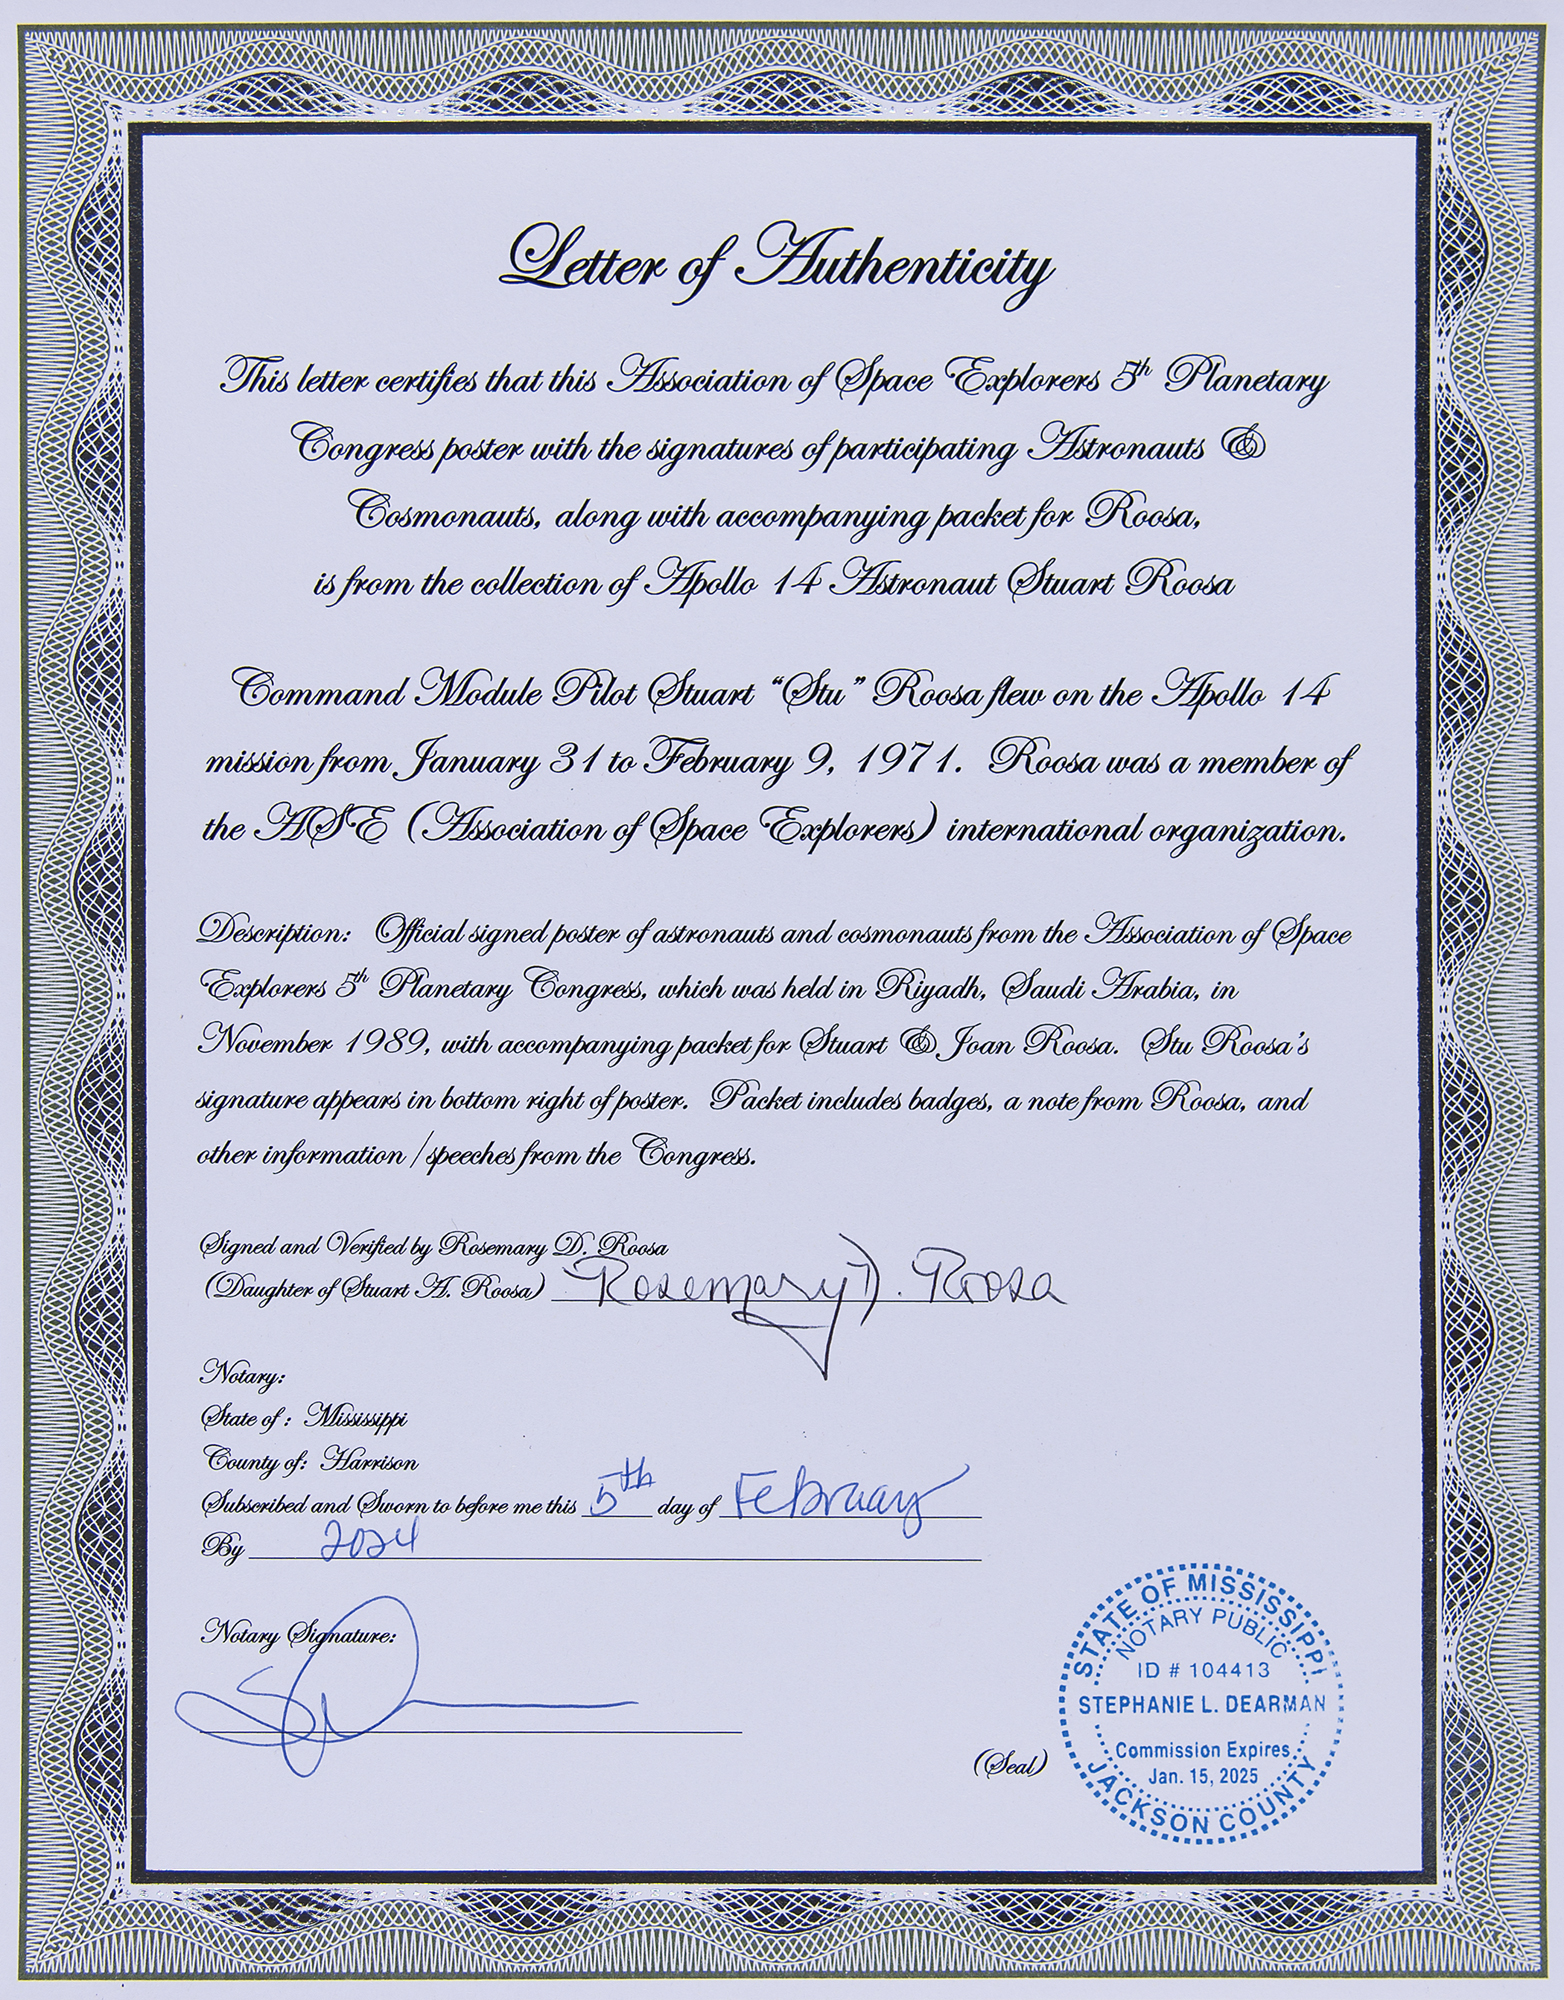 Letter of Authenticity
This letter certifies that this Association of Space Explorers 5th Planetary
Congress poster with the signatures of participating Astronauts &
Cosmonauts, along with accompanying packet for Roosa,
is from the collection of Apollo 14 Astronaut Stuart Roosa
Command Module Pilot Stuart “Stu” Roosa flew on the Apollo 14
mission from January 31 to February 9, 1971. Roosa was a member of
the ASE (Association of Space Explorers) international organization.
Description: Official signed poster of astronauts and cosmonauts from the Association of Space
Explorers 5th Planetary Congress, which was held in Riyadh, Saudi Arabia, in
November 1989, with accompanying packet for Stuart & Joan Roosa. Stu Roosa’s
signature appears in bottom right of poster. Packet includes badges, a note from Roosa, and
other information/speeches from the Congress.
Signed and Verified by Rosemary D. Roosa
(Daughter of Stuart A. Roosa) Rosemary D. Roosa
Notary:
State of: Mississippi
County of: Harrison
Subscribed and Sworn to before me this 5th day of February
By 2024
Notary Signature:
(Seal)
STATE OF MISSISSIPPI
NOTARY PUBLIC
ID # 104413
STEPHANIE L. DEARMAN
Commission Expires
Jan. 15, 2025
JACKSON COUNTY